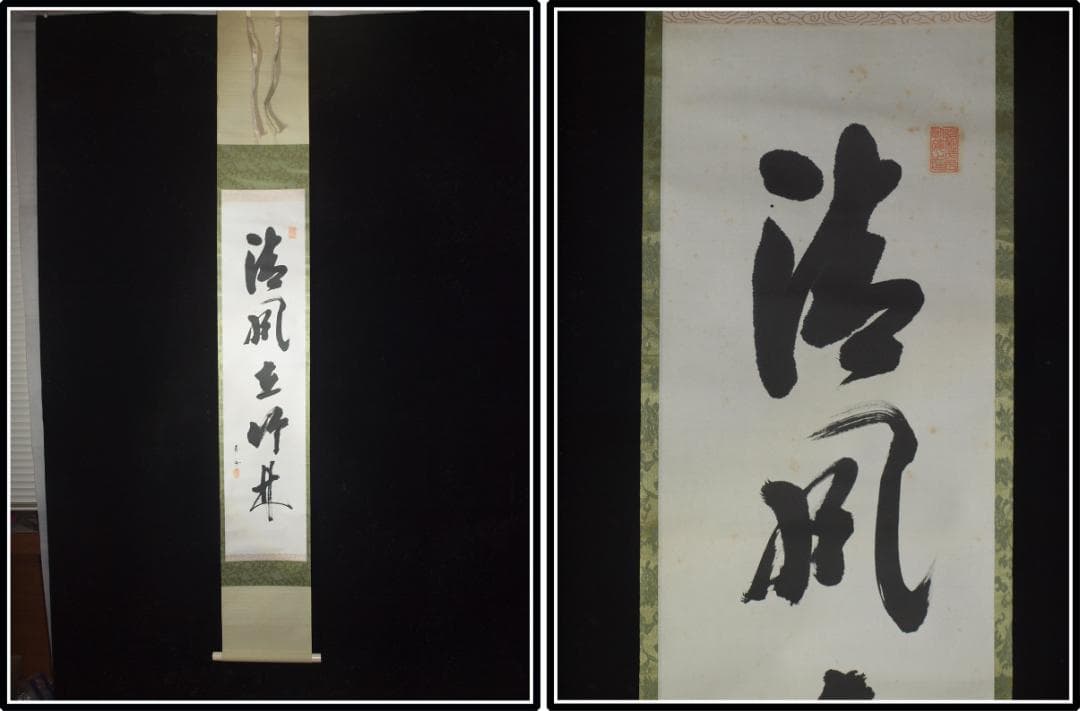 清風在竹林
清風